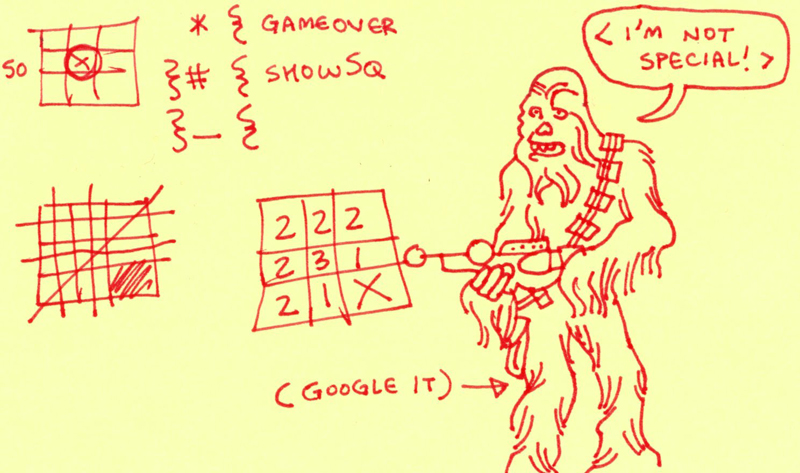 * { GAMEOVER
50
} # { SHOWSQ
} — {
< I'M NOT
SPECIAL! >
2 2 2
2 3 1
2 1 X
(GOOGLE IT) →